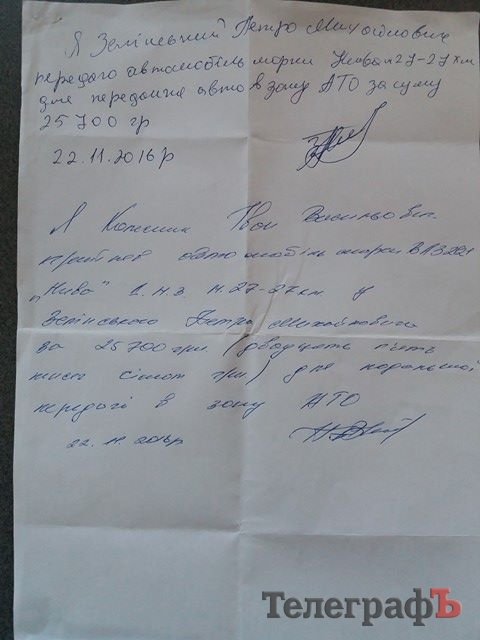 Я Зелінський Петро Михайлович
передаю автомобіль марки Нива н27-27км
для передачи авто в зону АТО за суму
25700 гр
22.11.2016р
Я Колесник Іван Васильович
прийняв автомобіль марки ВАЗ 2121
"Нива" Д.Н.З. н.27-27км. у
Зелінського Петра Михайловича
за 25700 грн. (двадцять п'ять
тисяч сімсот грн.) для подальшої
передачі в зону АТО
22.11.2016р
ТелеграфЪ